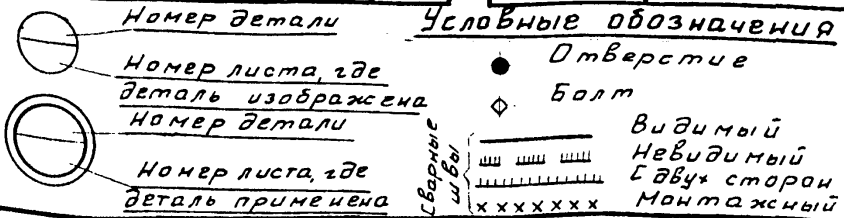 Номер детали
Номер листа, где
деталь изображена
Номер детали
Номер листа, где
деталь применена
Условные обозначения
Отверстие
Болт
Сварные
швы
Видимый
Невидимый
С двух сторон
Монтажный